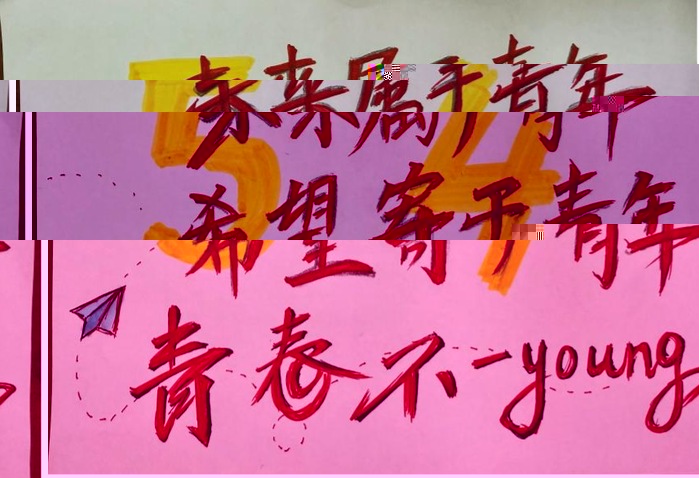 54
未来属于青年
希望寄予青年
青春不一young